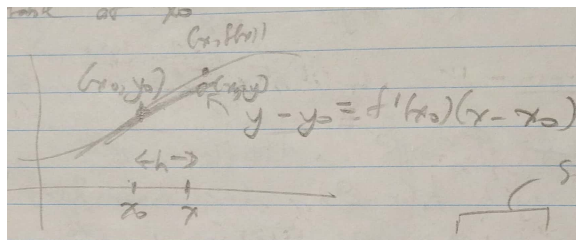 as x₀
(x, f(x))
(x₀, y₀)
(x, y)
y - y₀ = f'(x₀)(x - x₀)
←h→
x₀ x
S